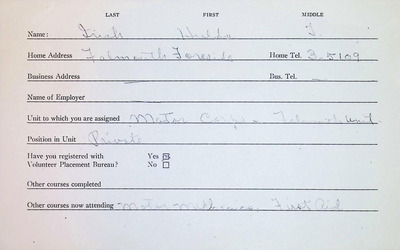 LAST FIRST MIDDLE
Name: Hilda F.
Home Address Falmouth Foreside Home Tel. 3-5109
Business Address Bus. Tel. —
Name of Employer
Unit to which you are assigned Motor Corps - Falmouth Unit.
Position in Unit Private
Have you registered with Yes ☒
Volunteer Placement Bureau? No ☐
Other courses completed
Other courses now attending Motor Mechanics, First Aid